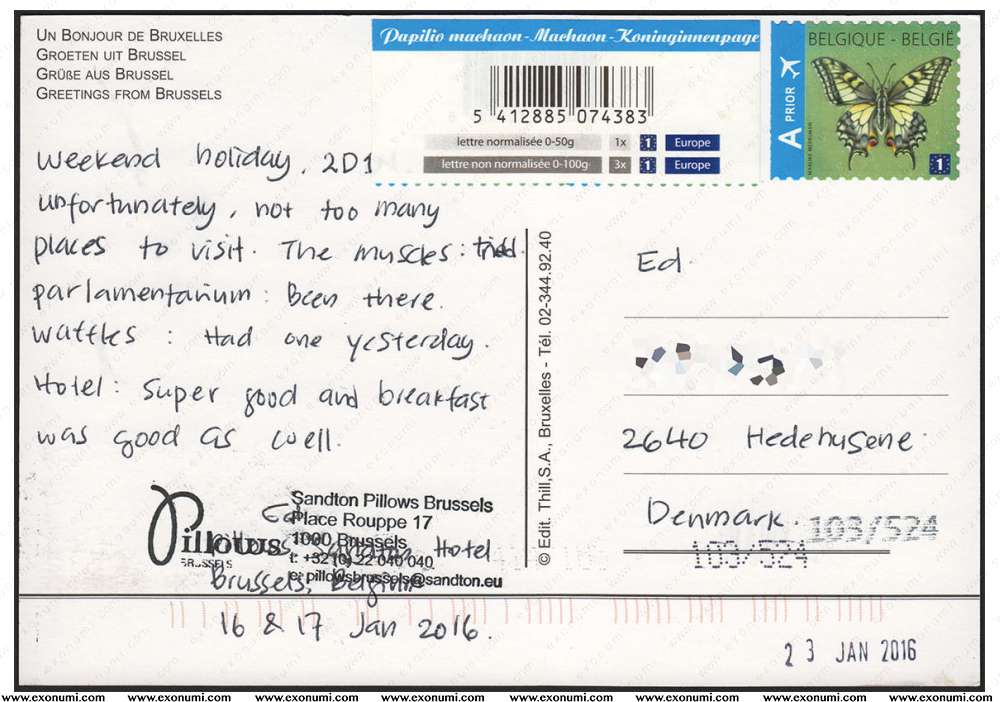 UN BONJOUR DE BRUXELLES
GROETEN UIT BRUSSEL
GRÜßE AUS BRUSSEL
GREETINGS FROM BRUSSELS
Papilio machaon-Machaon-Koninginnenpage
5 412885 074383
lettre normalisée 0-50g 1x 1 Europe
lettre non normalisée 0-100g 3x 1 Europe
A PRIOR
BELGIQUE - BELGIË
1
weekend holiday, 2D1
unfortunately, not too many
places to visit. The muscles: tried.
parlamentarium: Been there.
waffles: Had one yesterday.
Hotel: super good and breakfast
was good as well.
Ed
Pillows
BRUSSELS
Sandton Pillows Brussels
Place Rouppe 17
1000 Brussels
t: +32 (0) 22 040 040
e: pillowsbrussels@sandton.eu
Hotel
Brussels, Belgium
16 & 17 Jan 2016.
© Edit. Thill,S.A., Bruxelles - Tél. 02-344.92.40
Ed.
2640 Hedehusene.
Denmark.
103/524
103/524
23 JAN 2016
www.exonumi.com www.exonumi.com www.exonumi.com www.exonumi.com www.exonumi.com www.exonumi.com www.exonumi.com www.exonumi.com